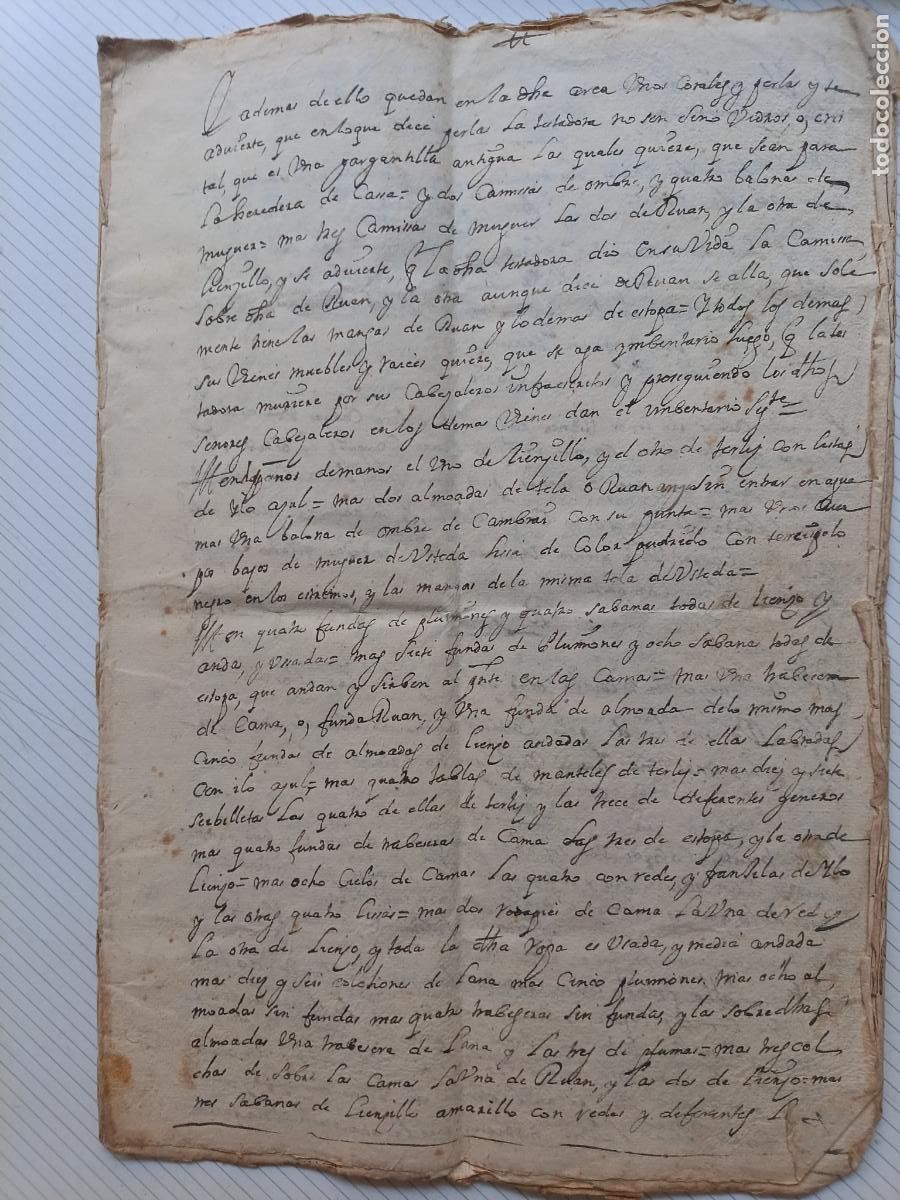 todocoleccion
Y ademas de ello quedan en la dha arca unos Corales y perlas y se
aduierte, que en lo que dice perlas la testadora no son sino Vidros, o, cris
tal, que es Una gargantilla antigua las quales quiere, que sean para
la heredera de Casa= y dos Camissas de ombre, y quatro balonas de
muguer= mas tres Camissas de muguer las dos de Ruan, y la otra de
lienzillo, y se aduierte, q la dha testadora dio en su Vida la Camissa
sobre dha de Ruan, y la otra aunque dice de Ruan se alla, que sola
mente tiene las mangas de Ruan y lo demas de estopa= Y todos los demas
sus Vienes muebles y raices quiere, que se aga ymbentario luego, q la tes
tadora muriere por sus Cabezaleros infraescritos y prosiguiendo los dhos
señores Cabezaleros en los demas Vienes dan el imbentario sigte=
Ytten paños de manos el Uno de lienzillo, y el otro de terliz con listas
de Ylo azul= mas dos almoadas de tela o Ruan sin entrar en agua
mas Una balona de ombre de Cambrai con su punta= mas Unos cuer
pos bajos de muguer de Usteda lissa de Color con terciopelo
negro en los estremos, y las mangas de la misma tela de Usteda=
Ytten quatro fundas de plumones y quatro sabanas todas de lienzo y
anda, y usadas= mas siete fundas de plumones y ocho sabanas todas de
estopa, que andan y sirben al qnte en las Camas= mas Una trabesera
de Cama, o, funda Ruan, y Una funda de almoada de lo mismo mas
Cinco fundas de almoadas de lienzo andadas las tres de ellas labradas
con ilo azul= mas quatro tablas de manteles de terliz= mas diez y siete
serbilletas las quatro de ellas de terliz y las trece de diferentes generos
mas quatro fundas de trabeseras de Cama las tres de estopa, y la otra de
lienzo= mas ocho Cielos de Camas las quatro con redes, y fantelas de Ylo
y las otras quatro lissas= mas dos rodapies de Cama la Una de red y
la otra de lienzo, y toda la dha ropa es Usada, y media andada
mas diez y seis colchones de lana mas Cinco plumones mas ocho al
moadas sin fundas mas quatro trabeseras sin fundas, y las sobredhas
almoadas Una trabesera de lana y las tres de plumas= mas tres col
chas de sobre las Camas la Una de Ruan, y las dos de lienzo= mas
tres sabanas de lienzillo amarillo con redes y diferentes